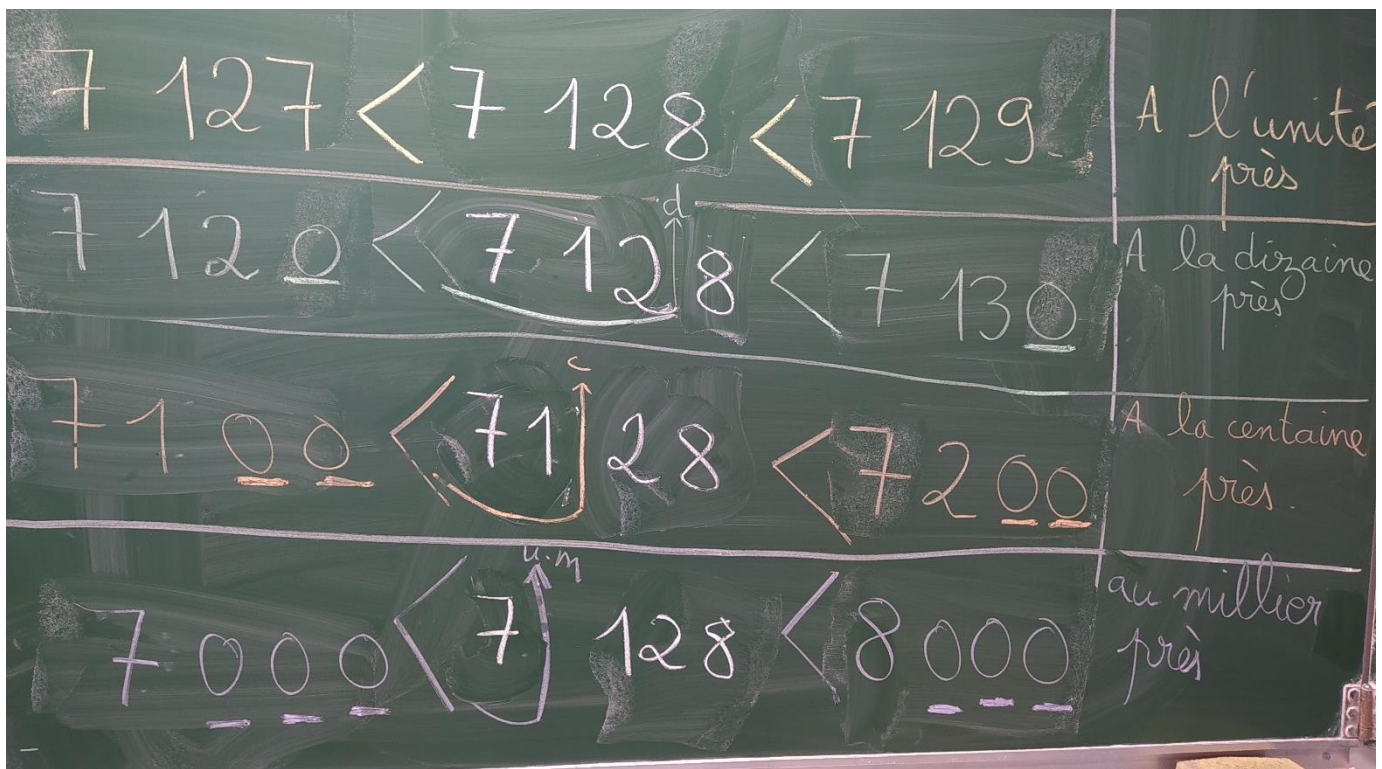 7 127 < 7 128 < 7 129
A l'unité
près
d
7 12 0 < 7 12 8 < 7 13 0
A la dizaine
près
c
7 1 0 0 < 7 1 2 8 < 7 2 0 0
A la centaine
près.
u.m
7 0 0 0 < 7 128 < 8 0 0 0
au millier
près